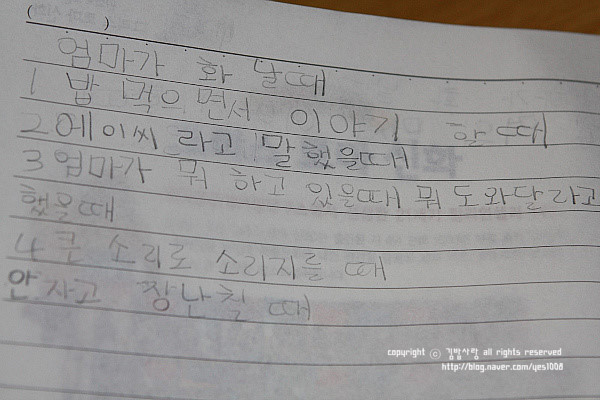 ( )
엄마가 화 날때
1 밥 먹으면서 이야기 할 때
2 에이씨 라고 말했을때
3 엄마가 뭐 하고 있을때 뭐 도와달라고
했을때
4 큰 소리로 소리지를 때
안 자고 장난칠 때
copyright ⓒ 김밥사랑 all rights reserved
http://blog.naver.com/yes1008